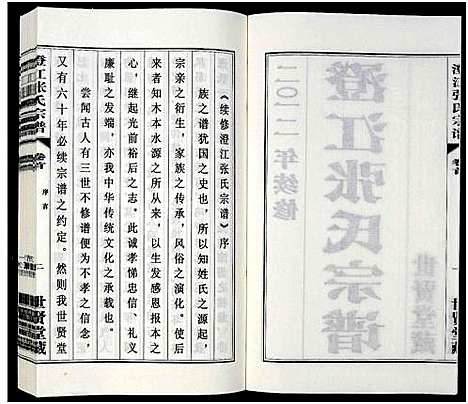 澄江张氏宗谱
卷首
世贤堂藏
二〇一二年续修
澄江张氏宗谱
世贤堂藏
《续修澄江张氏宗谱》序
族之谱犹国之史也，所以知姓氏之源起，
宗亲之衍生，家族之传承，风俗之演化。使后
来者知木本水源之所从来，以生发感恩报本之
心，继起光前裕后之志。此诚孝悌忠信、礼义
廉耻之发端，亦我中华传统文化之承载也。
尝闻古人有三世不修谱便为不孝之信念，
又有六十年必续宗谱之约定。然则我世贤堂
澄江张氏宗谱
卷首
序言
二
世贤堂藏